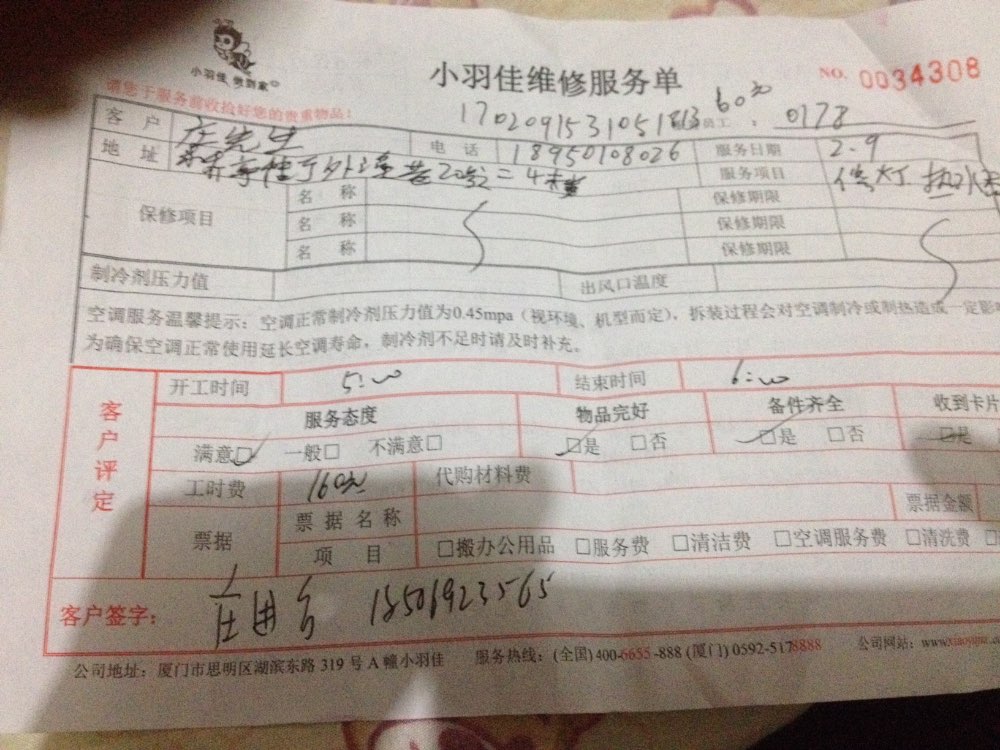 小羽佳 做到家
小羽佳维修服务单
NO. 0034308
请您于服务前收捡好您的贵重物品!
1702091531051813 60元 员工: 0178
客户 庄先生 电话 18950108026 服务日期 2.9
地址 服务项目 修灯 热水器
保修项目 名称 保修期限
名称 保修期限
名称 保修期限
制冷剂压力值 出风口温度
空调服务温馨提示:空调正常制冷剂压力值为0.45mpa(视环境、机型而定),拆装过程会对空调制冷或制热造成一定影
为确保空调正常使用延长空调寿命,制冷剂不足时请及时补充。
客户评定
开工时间 5:00 结束时间 6:00
服务态度 物品完好 备件齐全 收到卡片
满意□ 一般□ 不满意□ □是 □否 □是 □否 □是
工时费 160元 代购材料费
票据 票据名称 票据金额
项目 □搬办公用品 □服务费 □清洁费 □空调服务费 □清洗费
客户签字: 18506923565
公司地址:厦门市思明区湖滨东路 319 号 A 幢小羽佳 服务热线:(全国) 400-6655-888 (厦门) 0592-5178888 公司网站: